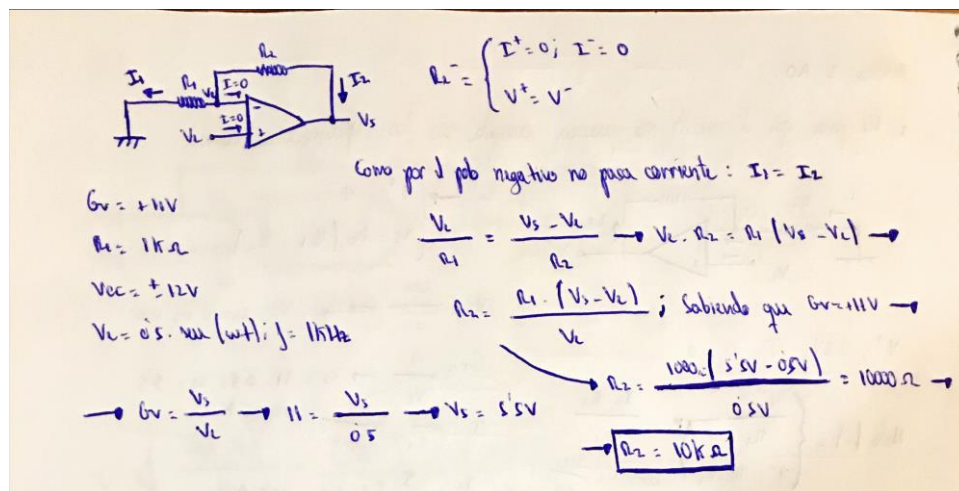 R2
I1
R1
Ve
I=0
I2
I=0
Ve
-
+
Vs
I⁺=0; I⁻=0
V⁺=V⁻
Como por el polo negativo no pasa corriente: I1 = I2
Gv = +11V
R1 = 1KΩ
Vcc = ±12V
Ve = 0'5. sen (wt); f = 1KHz
Ve/R1 = (Vs - Ve)/R2 → Ve · R2 = R1 (Vs - Ve) →
R2 = R1 · (Vs - Ve)/Ve ; Sabiendo que Gv=+11V →
→ Gv = Vs/Ve → 11 = Vs/0'5 → Vs = 5'5V
R2 = 1000·(5'5V - 0'5V)/0'5V = 10000Ω →
→ R2 = 10KΩ